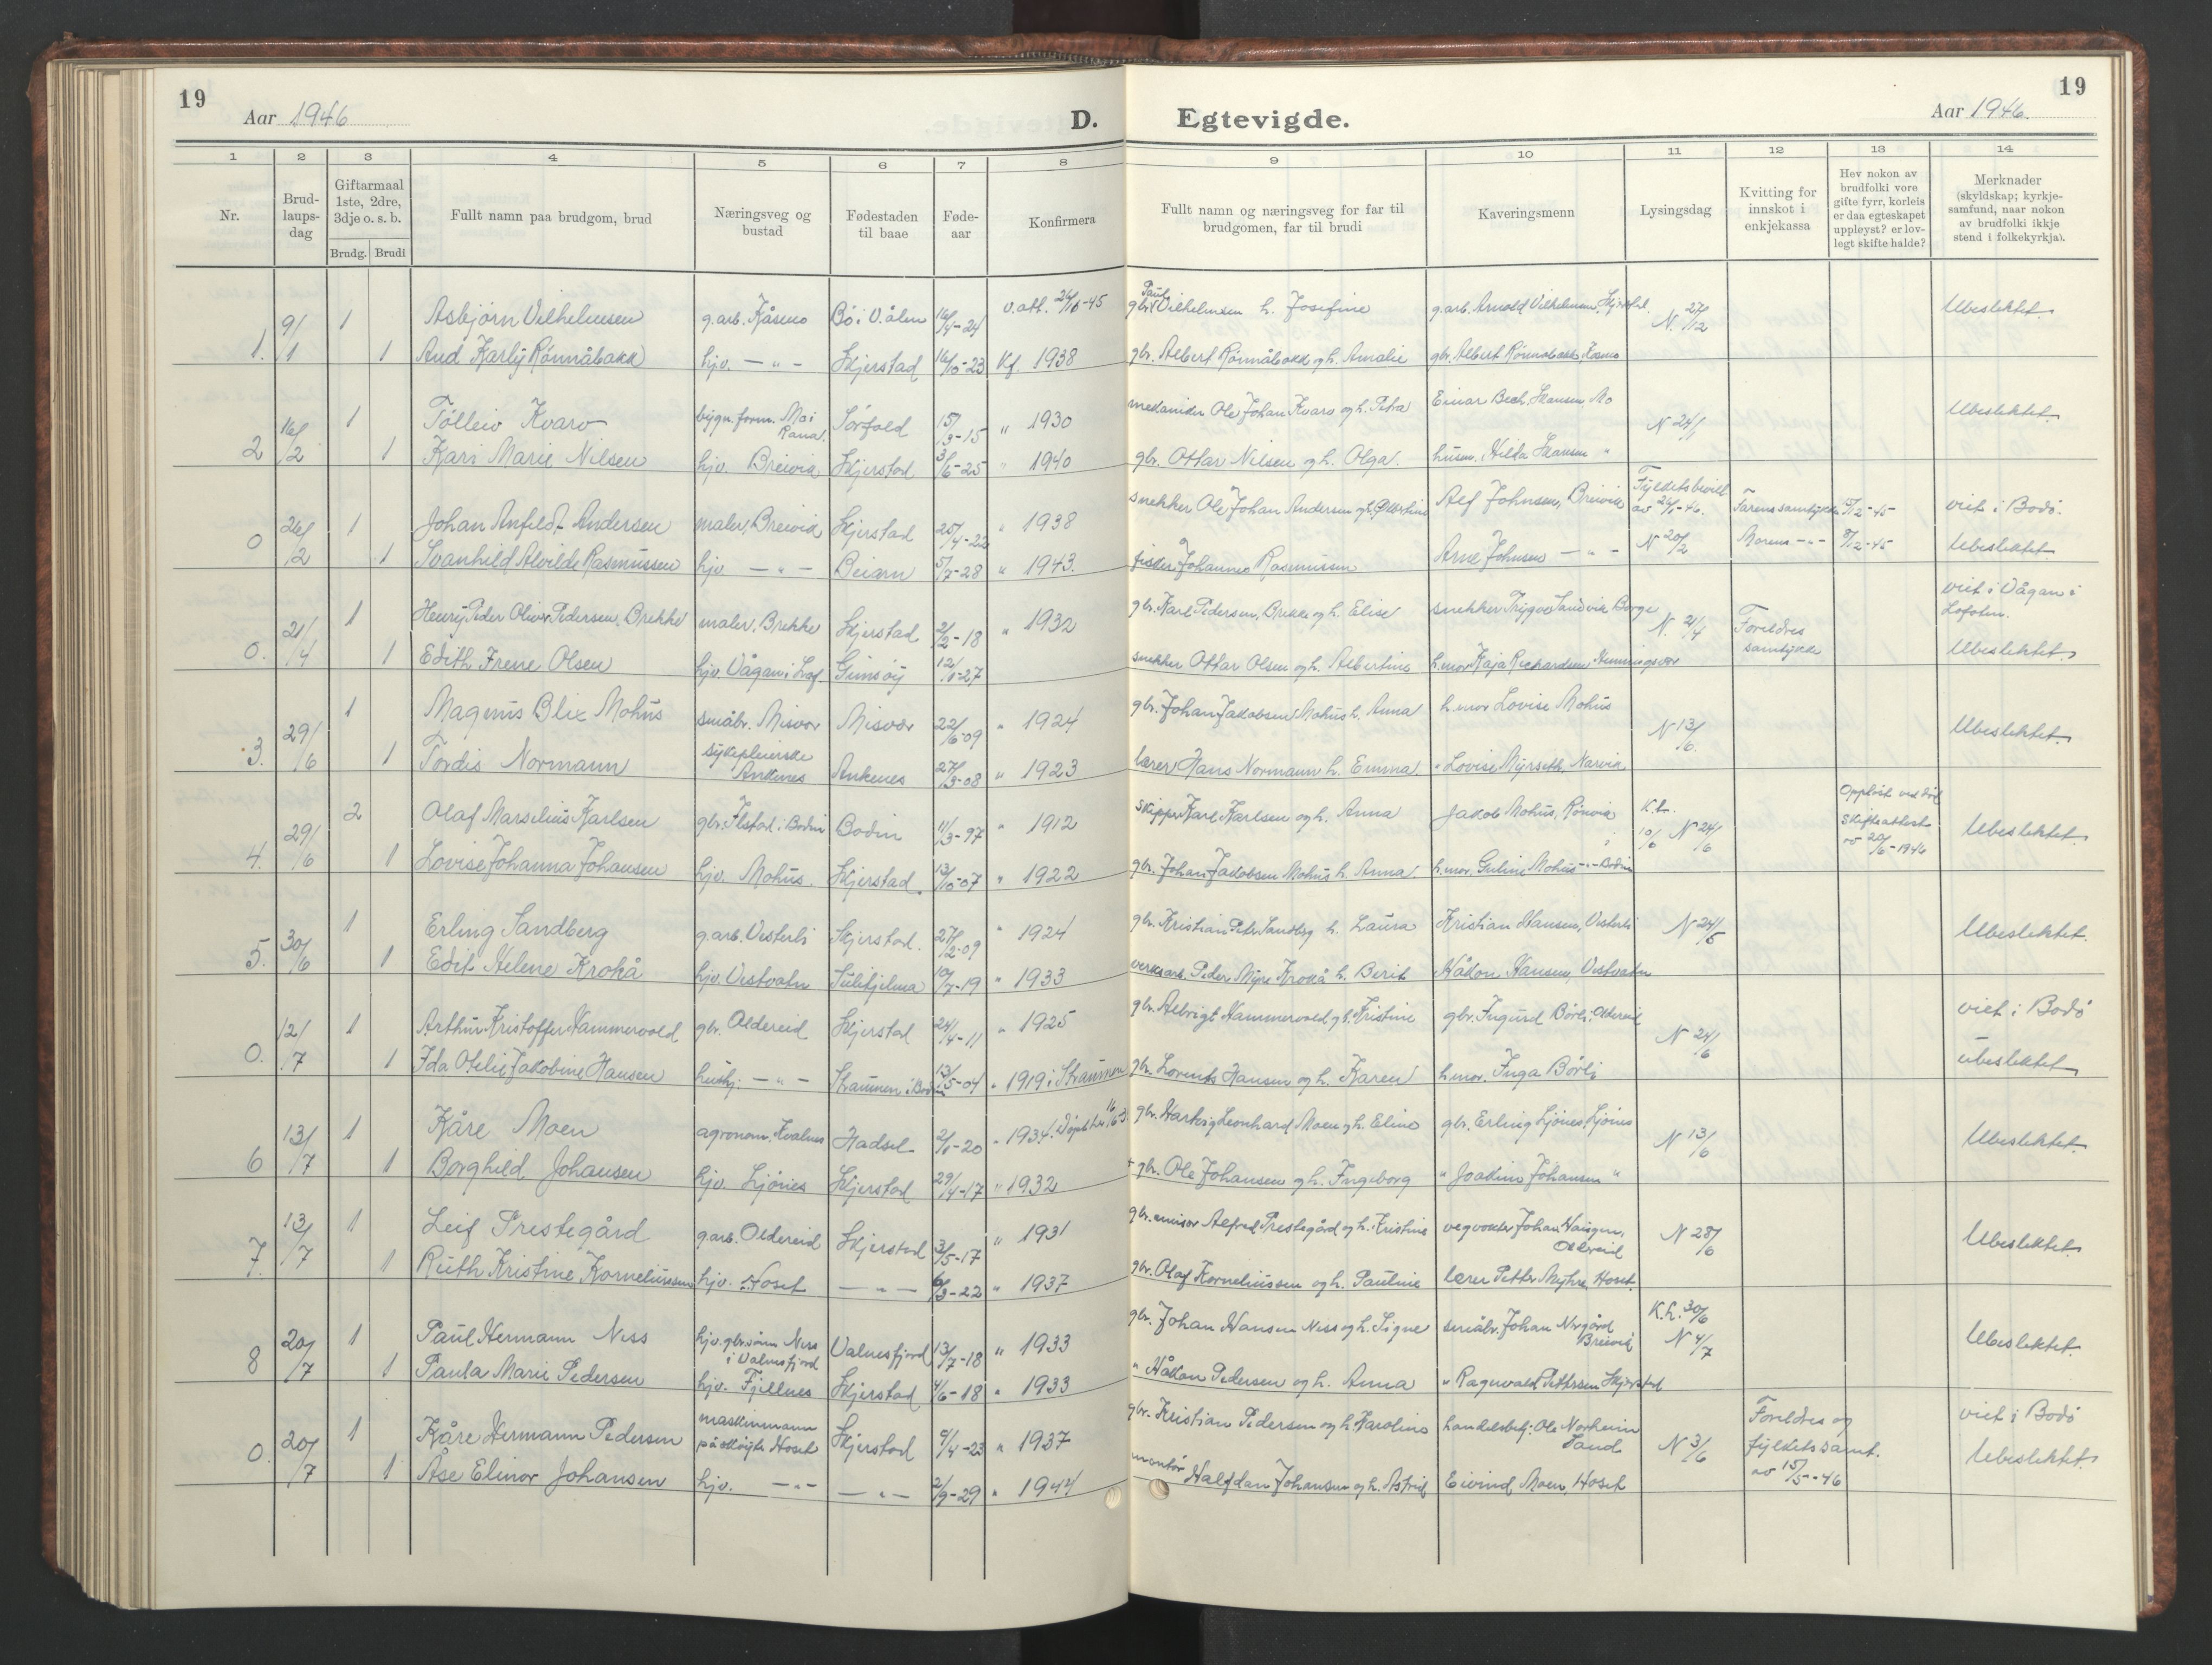 19
Aar 1946
D. Egtevigde.
Aar 1946.
19
1 2 3 4 5 6 7 8 9 10 11 12 13 14
Nr.
Brud-
laups-
dag
Giftarmaal
1ste, 2dre,
3dje o. s. b.
Brudg. Brudi
Fullt namn paa brudgom, brud
Næringsveg og
bustad
Fødestaden
til baae
Føde-
aar
Konfirmera
Fullt namn og næringsveg for far til
brudgomen, far til brudi
Kaveringsmenn
Lysingsdag
Kvitting for
innskot i
enkjekassa
Hev nokon av
brudfolki vore
gifte fyrr, korleis
er daa egteskapet
uppløyst? er lov-
legt skifte halde?
Merknader
(skyldskap; kyrkje-
samfund, naar nokon
av brudfolki ikkje
stend i folkekyrkja).
9/1 1 Asbjörn Vilhelmsen g.arb. Kåsmo Bö i V.ålen 16/4-24 v.att. 26/10-45 gbr. Paul Vilhelmsen h. Josefine g.arb. Arnold Vilhelmsen, Skjerstad N. 27/12 Ubeslektet.
1. 1 Aud Karly Rönnåbakk hjv. -"- Skjerstad 16/10-23 Kf. 1938 gbr. Albert Rönnåbakk og h. Amalie gbr. Albert Rönnåbakk, Kosmo
16/2 1 Tolleiv Kvarv bygn.form. Mo i Rana. Sörfold 15/3-15 " 1930 mekaniker Ole Johan Kvarv og h. Petra Einar Bech Hansen, Mo N 24/1 Ubeslektet.
2 1 Kari Marie Nilsen hjv. Breivik Skjerstad 3/6-25 " 1940 gbr. Ottar Nilsen og h. Olga. husm. Hilda Hansen "
0 26/2 1 Johan Anfeldt Andersen maler, Breivik Skjerstad 25/4-22 " 1938 snekker Ole Johan Andersen og h. Albertine Alf Johnsen, Breivik Fylketsbevill. av 26/1-46. Farens samtykke 15/12-45 viet i Bodö.
1 Svanhild Alvilde Rasmussen hjv -"- Beiarn 5/7-28 " 1943. fisker Johannes Rasmussen Arne Johnsen -"- N 20/2 Morens -"- 8/12-45 Ubeslektet
0. 21/4 1 Henry Peder Oliver Pedersen, Brekke maler, Brekke Skjerstad 2/2-18 " 1932 gbr. Karl Pedersen, Brekke og h. Elise snekker Trygve Sandvik Borge N. 2/4 Foreldres samtykke viet i Vågan i Lofoten.
1 Edith Irene Olsen hjv. Vågan i Lof. Gimsöy 12/1-27 snekker Ottar Olsen og h. Albertine h.mor Kaja Rickardsen Henningsvær Ubeslektet.
3. 29/6 1 Magnus Blix Mohus småbr. Misvær Misvær 22/6-09 " 1924 gbr. Johan Jakobsen Mohus h. Anna h.mor Lovise Mohus N 13/6. Ubeslektet.
1 Tordis Normann sykepleierske Ankenes Ankenes 27/3-08 " 1923 lærer Hans Normann h. Emma. " Lovise Myrseth, Narvik
4. 29/6 2 Olaf Marselius Karlsen gbr. Ilstad i Bodin Bodin 11/3-97 " 1912 skipper Karl Karlsen og h. Anna Jakob Mohus, Rönvik K.l. 10/6 N 24/6 Opplöst ved död skifteattest av 20/6-1946 Ubeslektet.
1 Lovise Johanna Johansen hjv. Mohus. Skjerstad. 13/10-07 " 1922 gbr. Johan Jakobsen Mohus h. Anna. h.mor. Guline Mohus -"- Bodin
5. 30/6 1 Erling Sandberg g.arb. Vesterli Skjerstad. 27/2-09 " 1924 gbr. Kristian Petr. Sandberg h. Laura Kristian Hansen, Vesterli N 24/5 Ubeslektet.
1 Edit Helene Krokå hjv. Vestvatn Sulitjelma 10/7-19 " 1933 verksarb. Peder Myre Krokå h. Berit Håkon Hansen, Vestvatn
0. 12/7 1 Arthur Kristoffer Hammervold gbr. Oldereid Skjerstad 24/4-11 " 1925 gbr. Albrigt Hammervold og h. Kristine gbr. Ingurd Börli, Oldereid N 24/6 viet i Bodö
1 Ida Otelie Jakobine Hansen hushj. -"- Straumen i Bodin 13/5-04 " 1919 i Straumen gbr. Lorents Hansen og h. Karen h.mor. Inga Börli ubeslektet
6 13/7 1 Kåre Moen agronom. Kvalnes Hadsel 2/1-20 " 1934. gbr. Hartvig Leonhard Moen og h. Eline gbr. Erling Ljönes, Ljönes N 13/6 Ubeslektet.
1 Borghild Johansen hjv. Ljönes Skjerstad 29/4-17 " 1932 + gbr. Ole Johansen og h. Ingeborg " Joakim Johansen "
7. 13/7 1 Leif Prestegård g.arb. Oldereid Skjerstad 3/5-17 " 1931 gbr. Alfred Prestegård og h. Kristine vegvokter Johan Haugen, Oldereid N 28/6 Ubeslektet.
1 Ruth Kristine Korneliussen hjv. Hoset -"- 6/3-22 " 1937 gbr. Olaf Korneliussen og h. Pauline lærer Petter Myhre, Hoset.
8 20/7 1 Paul Hermann Ness hjv. gbr.sönn Ness i Valnesfjord Valnesfjord 13/7-18 " 1933 gbr. Johan Hansen Ness og h. Signe småbr. Johan Nergård Breivik K.l. 30/6 N 4/7 Ubeslektet.
1 Paula Marie Pedersen hjv. Fjellnes Skjerstad 4/6-18 " 1933 " Håkon Pedersen og h. Anna " Ragnvald Pettersen Skjerstad
0. 20/7 1 Kåre Hermann Pedersen maskinmann på sköyte Hoset Skjerstad 9/4-23 " 1937 gbr. Kristian Pedersen og h. Karoline handelsbetj. Ole Norheim Sand N 3/6 Foreldres og fylkets samt. av 15/5-46 viet i Bodö
1 Åse Elinor Johansen hjv. -"- -"- 2/9-29 " 1944 montör Halfdan Johansen og h. Astrid Eivind Moen, Hoset Ubeslektet.